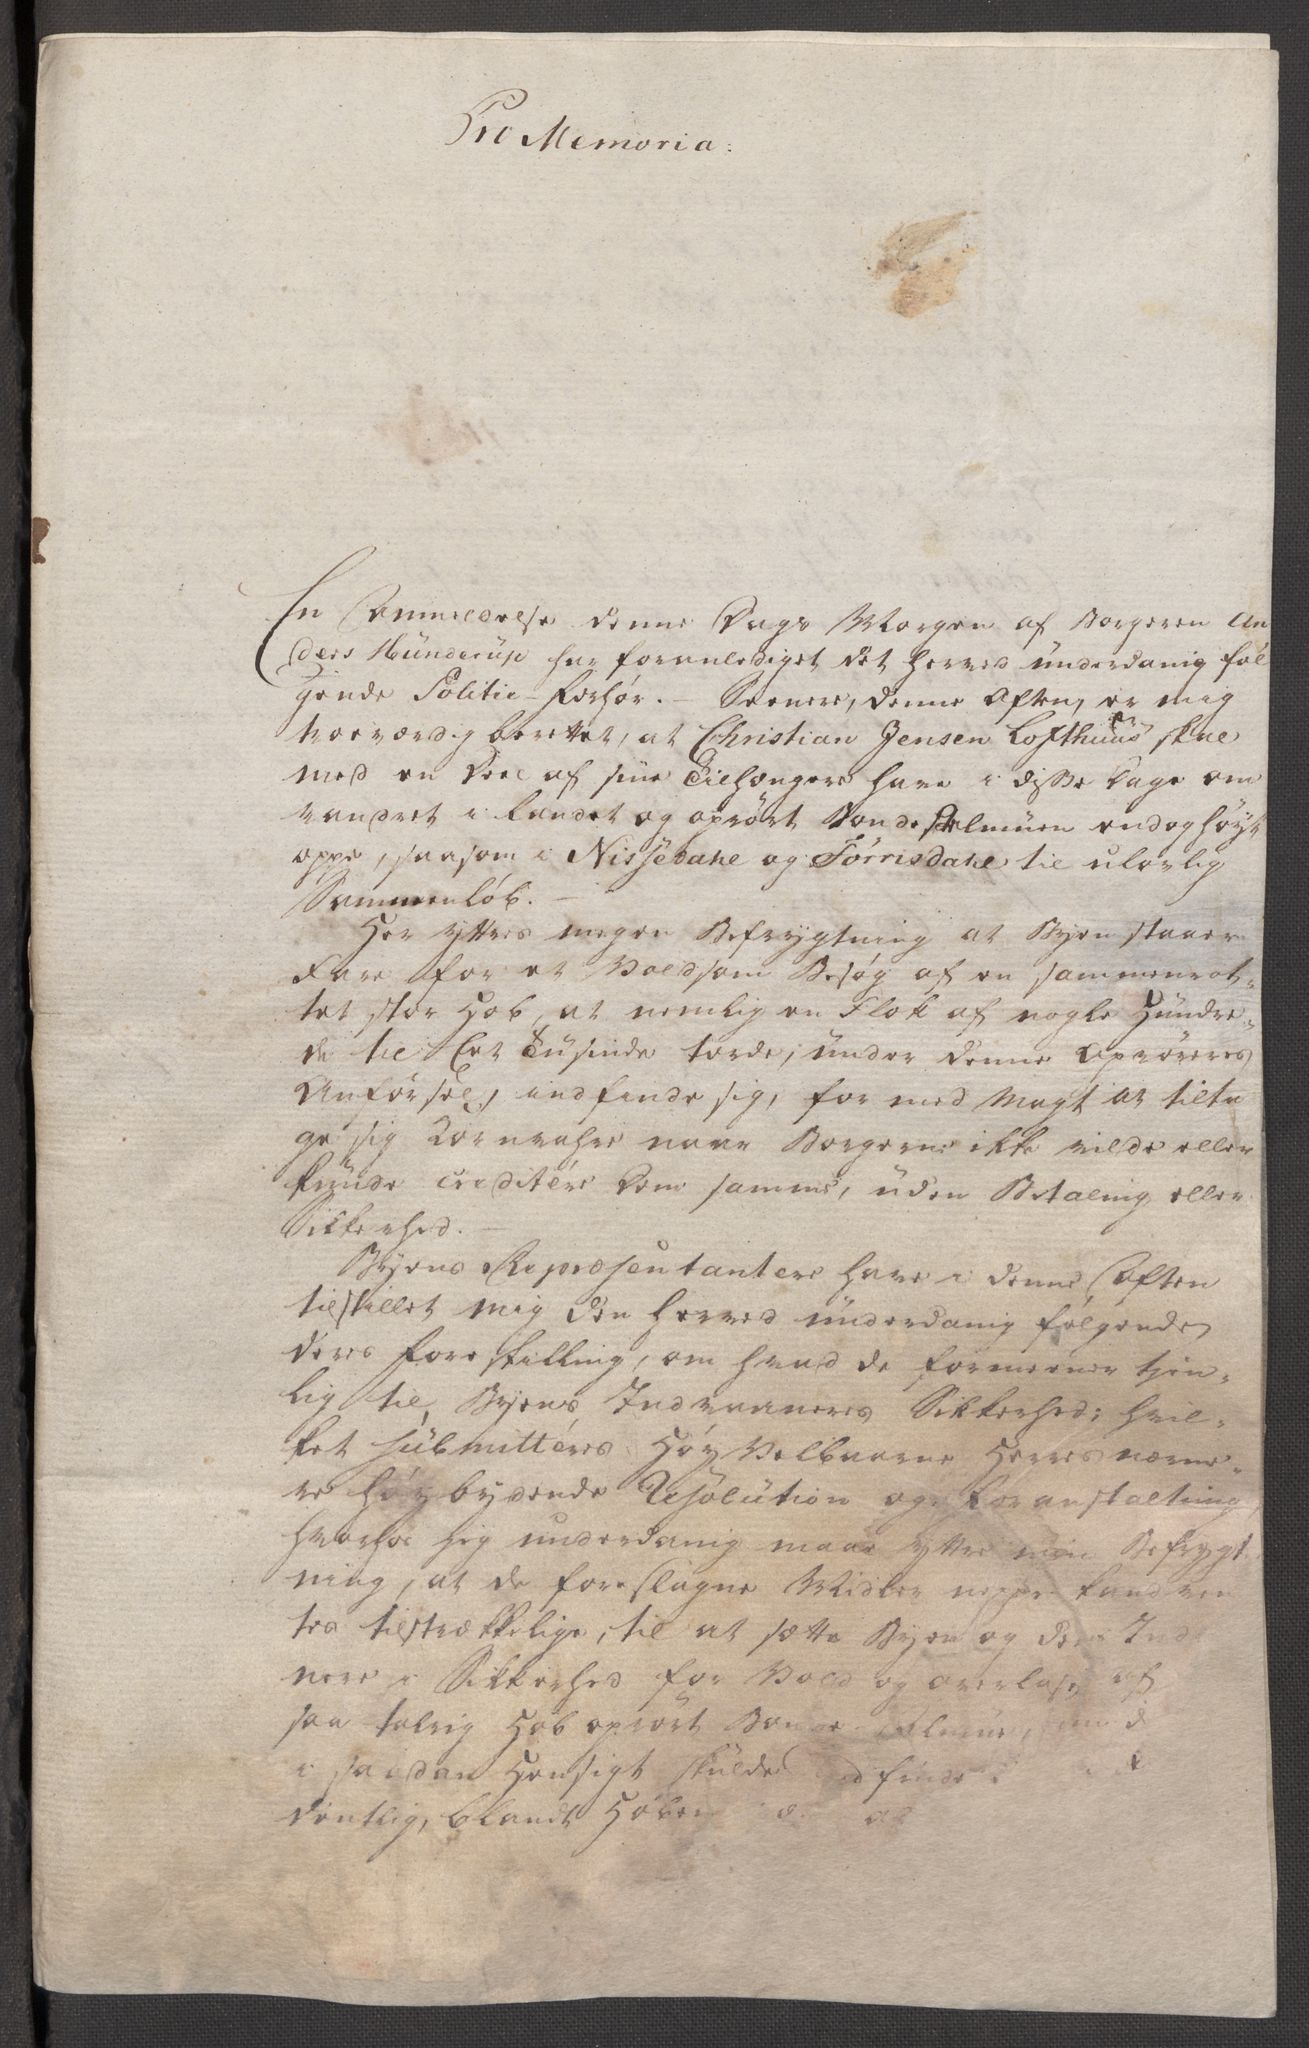 Pro Memoria:
En Anmeldelse denne Dags Morgen af Borgeren An
ders Hünderüp har foranlediget det herved ünderdanig føl
gende Politie-Forhør. – Seenere, denne Aften, er mig
troværdig berettet, at Christian Jensen Lofthuus skal
med en Deel af sine Tilhængere have i disse Dage om
vandret i Landet og oprørt Bonde Almüen endog høyt
oppe, saasom i Nissedahl og Tørrisdahl til ulovlig
Sammenløb. –
Her yttres megen Befrygtning at Byen staaer
Fare for et Voldsom Besøg af en sammenrot-
tet stor Hob, at nemlig en Flok af nogle Hündre-
de til Eet Tüsinde torde, ünder denne Oprøreres
Anførsel, indfinde sig, for med Magt at tilta
ge sig Kornvahre naar Borgerne ikke vilde eller
kunde creditére dem samme, uden Betaling eller
Sikkerhed. –
Byens Repræsentantere have i denne Aften
tilstillet mig den herved ünderdanig følgende
deres Forestilling, om hvad de formeener tjen-
lig til Byens Indvaaneres Sikkerhed; hvil-
ket submitteres Høy Velbaarne Herres nærme-
re høybydende Resolution og Foranstaltning
hvorhos jeg underdanig maae yttre min Befrygt
ning, at de foreslagne Midler neppe kand ven
tes tilstrækkelige, til at sætte Byen og dens Ind
nere i Sikkerhed for Vold og overlast af
saa talrig Hob oprørt Bonde Almue, som
i saadan Hensigt skulde indfinde
dentlig, blandt Hoben